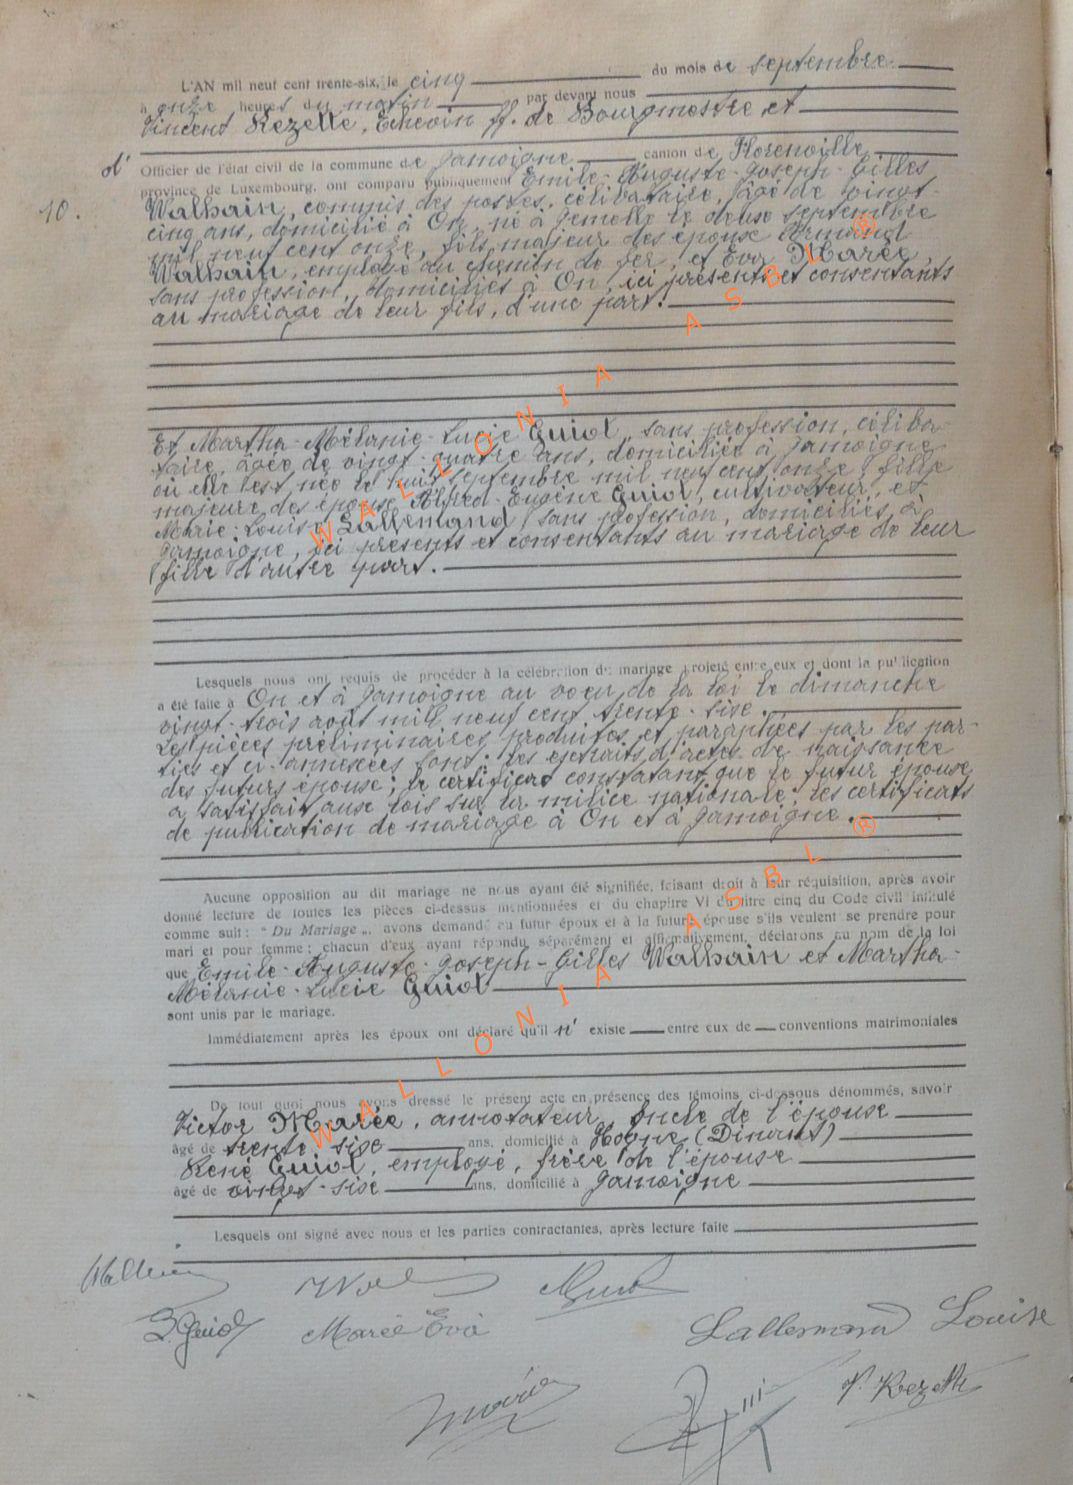 L'AN mil neuf cent trente-six, le cinq du mois de septembre
à onze heures du matin par devant nous
Vincent Rezette, Echevin ff. de Bourgmestre, et
d' Officier de l'état civil de la commune de Jamoigne canton de Florenville
province de Luxembourg, ont comparu publiquement Emile-Auguste-Joseph-Gilles
10. Walhain, commis des postes, célibataire, âgé de vingt-
cinq ans, domicilié à On, né à Jemelle le douze septembre
mil neuf cent onze, fils majeur des époux Armand
Walhain, employé au chemin de fer, et Eva Marée,
sans profession, domiciliés à On, ici présents et consentants
au mariage de leur fils, d'une part.
Et Martha-Mélanie-Lucie Guiot, sans profession, céliba-
taire, âgée de vingt-quatre ans, domiciliée à Jamoigne
où elle est née le huit septembre mil neuf cent onze, fille
majeure des époux Alfred-Eugène Guiot, cultivateur, et
Marie-Louise Lallemand, sans profession, domiciliés à
Jamoigne, ici présents et consentants au mariage de leur
fille d'autre part.
Lesquels nous ont requis de procéder à la célébration du mariage projeté entre eux et dont la publication
a été faite à On et à Jamoigne au voeu de la loi le dimanche
vingt-trois août mil neuf cent trente-sixe.
Les pièces préliminaires produites et paraphées par les par-
ties et ci-annexées sont: les extraits d'actes de naissance
des futurs époux; le certificat constatant que le futur époux
a satisfait aux lois sur la milice nationale; les certificats
de publication de mariage à On et à Jamoigne.
Aucune opposition au dit mariage ne nous ayant été signifiée, faisant droit à leur réquisition, après avoir
donné lecture de toutes les pièces ci-dessus mentionnées et du chapitre VI du titre cinq du Code civil intitulé
comme suit: "Du Mariage", avons demandé au futur époux et à la future épouse s'ils veulent se prendre pour
mari et pour femme; chacun d'eux ayant répondu séparément et affirmativement, déclarons au nom de la loi
que Emile-Auguste-Joseph-Gilles Walhain et Martha-
Mélanie-Lucie Guiot
sont unis par le mariage.
Immédiatement après les époux ont déclaré qu'il n' existe entre eux de conventions matrimoniales
De tout quoi nous avons dressé le présent acte en présence des témoins ci-dessous dénommés, savoir
Victor Marée, annotateur, oncle de l'époux
âgé de trente-six ans, domicilié à Hogne (Dinant)
René Guiot, employé, frère de l'épouse
âgé de vingt-six ans, domicilié à Jamoigne
Lesquels ont signé avec nous et les parties contractantes, après lecture faite
Guiot
Guiot Marée Eva Lallemand Louise
V. Rezette
WALLONIA ASBL ®
WALLONIA ASBL ®